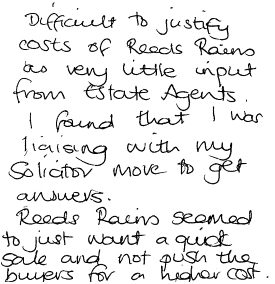 Difficult to justify
costs of Reeds Rains
as very little input
from Estate Agents.
I found that I was
liaising with my
Solicitor more to get
answers.
Reeds Rains seemed
to just want a quick
sale and not push the
buyers for a higher cost.